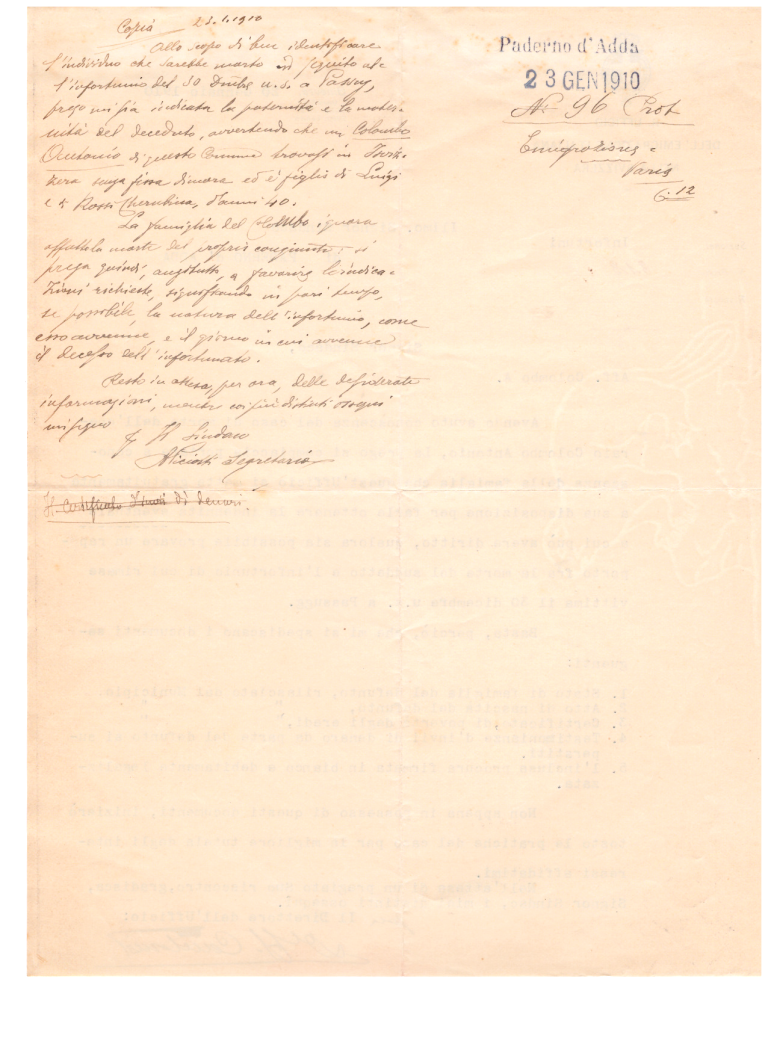 Copia 23.1.1910
Allo scopo di bene identificare
l'individuo che sarebbe morto in seguito al-
l'infortunio del 30 Dmbre u. s. a Passy,
prego mi sia indicata la paternità e la mater-
nità del deceduto, avvertendo che un Colombo
Antonio di questo Comune trovasi in Sviz-
zera senza fissa dimora ed è figlio di Luigi
e di Rossi Cherubina, d'anni 40.
La famiglia del Colombo ignora
affatto la morte del proprio congiunto; si
prega quindi, anzitutto, a favorire le indica-
zioni richieste, significando in pari tempo,
se possibile, la natura dell'infortunio, come
esso avvenne, e il giorno in cui avvenne
il decesso dell'infortunato.
Resto in attesa, per ora, delle desiderate
informazioni, mentre coi più distinti ossequi
mi segno
Il Sindaco
Segretario
Il
Paderno d'Adda
23 GEN 1910
N. 96 Prot
Emigrazione -
Paris
C. 12